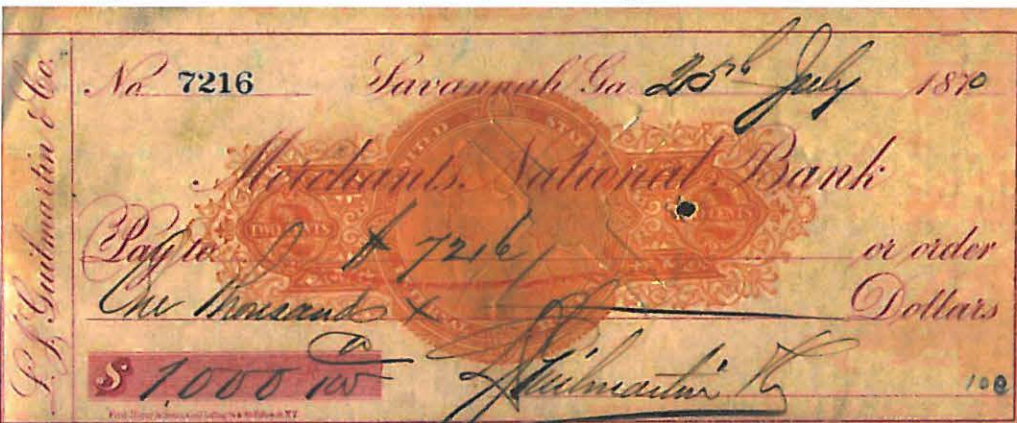 L. J. Guilmartin & Co.
No. 7216 Savannah Ga. 25th July 1870
UNITED STATES
Merchants National Bank
TWO CENTS CENTS
Pay to # 7216 or order
One Thousand x Dollars
$ 1,000 00/100 L J Guilmartin & Co
100